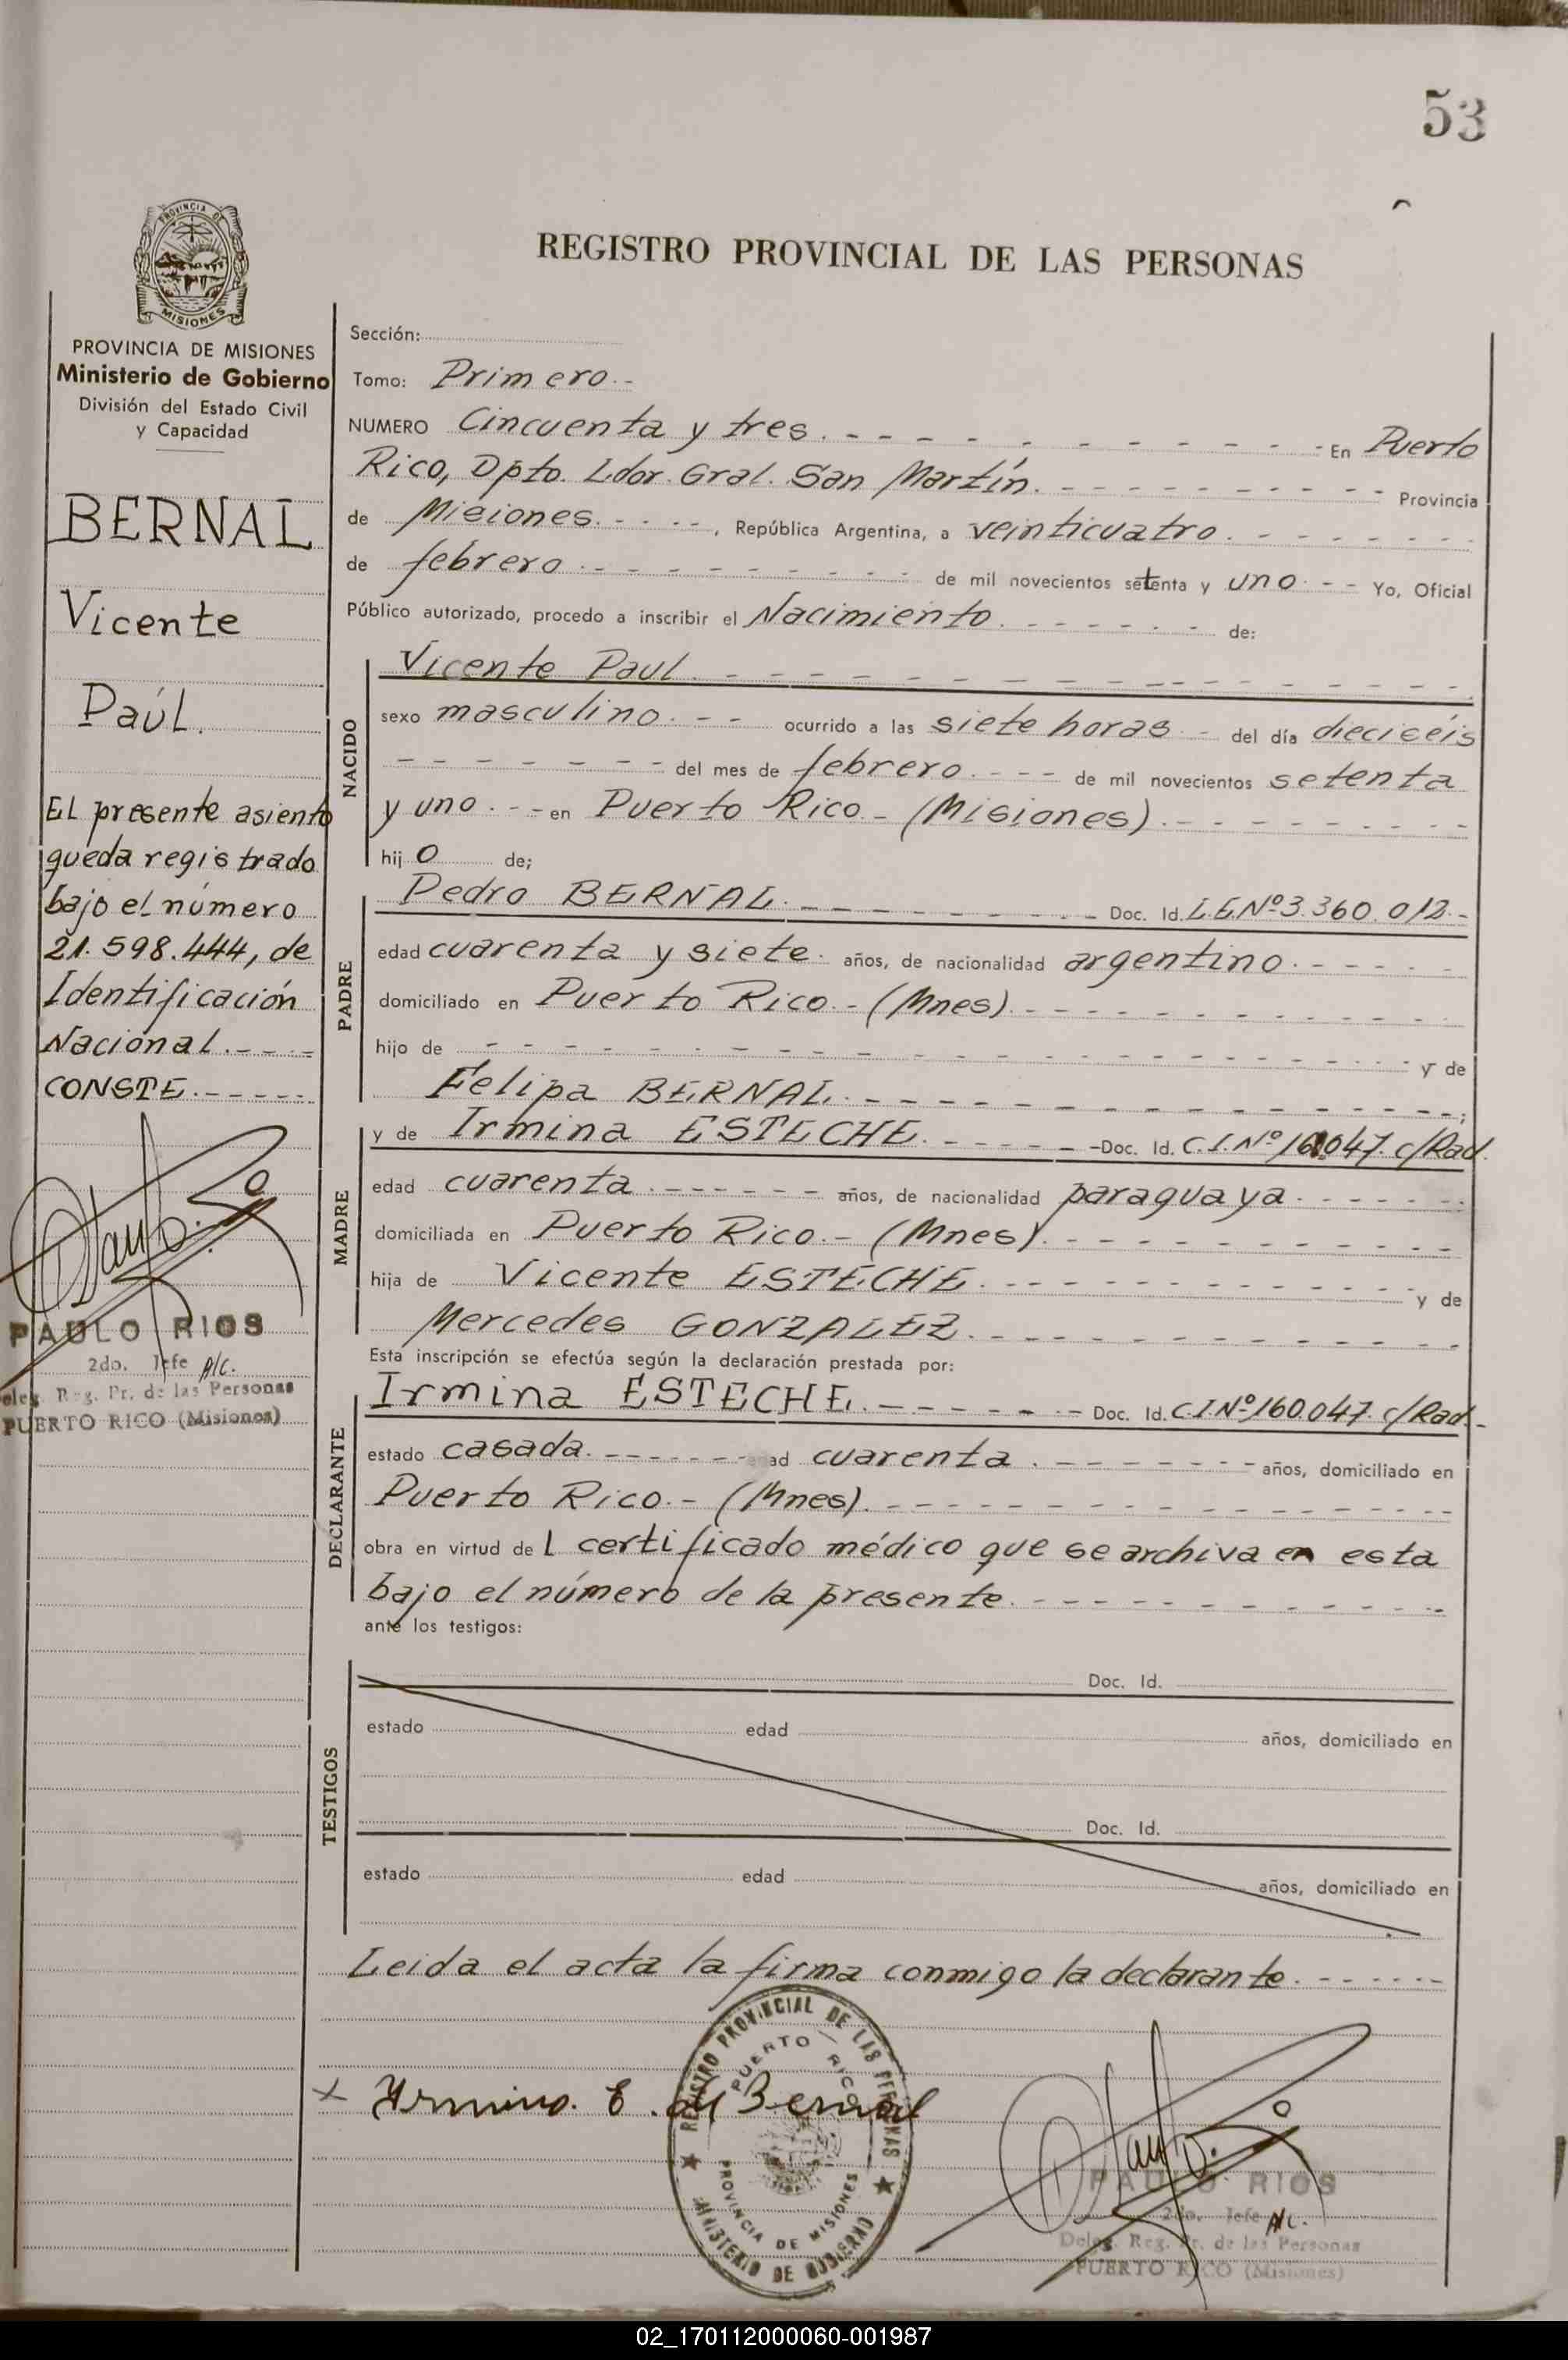 53
PROVINCIA DE
MISIONES
REGISTRO PROVINCIAL DE LAS PERSONAS
PROVINCIA DE MISIONES
Ministerio de Gobierno
División del Estado Civil
y Capacidad
BERNAL
Vicente
Paúl.
El presente asiento
queda registrado
bajo el número
21.598.444, de
Identificación
Nacional.----
CONSTE.-----
PAULO RIOS
2do. Jefe A/C.
Deleg. Reg. Pr. de las Personas
PUERTO RICO (Misiones)
Sección:
Tomo: Primero.-
NUMERO Cincuenta y tres. - - - - - - - - - - - En Puerto
Rico, Dpto. Ldor. Gral. San Martín. - - - - - - - - - - Provincia
de Misiones. - - - - -, República Argentina, a veinticuatro. - - - - - - -
de febrero. - - - - - - - - - de mil novecientos setenta y uno. - - Yo, Oficial
Público autorizado, procedo a inscribir el Nacimiento. - - - - - - de:
NACIDO
Vicente Paul. - - - - - - - - - - - - - - - - - -
sexo masculino. - - ocurrido a las siete horas. - del día dieciséis
- - - - - - - del mes de febrero. - - - - de mil novecientos setenta
y uno. - - - en Puerto Rico.- (Misiones). - - - - - - - -
hijo de;
PADRE
Pedro BERNAL. - - - - - - - - - Doc. Id. L.E.Nº3.360.012.-
edad cuarenta y siete. años, de nacionalidad argentino. - - - - -
domiciliado en Puerto Rico.- (Mnes). - - - - - - - - - - -
hijo de - - - - - - - - - - - - - - - - - - - - y de
Felipa BERNAL. - - - - - - - - - - - - - - - -;
MADRE
y de Irmina ESTECHE. - - - - - - Doc. Id. C.I.Nº 160.047. c/Rad.
edad cuarenta. - - - - - - - años, de nacionalidad paraguaya. - - - - - -
domiciliada en Puerto Rico.- (Mnes). - - - - - - - - - -
hija de Vicente ESTECHE. - - - - - - - - - - - y de
Mercedes GONZALEZ. - - - - - - - - - - - -
Esta inscripción se efectúa según la declaración prestada por:
DECLARANTE
Irmina ESTECHE. - - - - - - - Doc. Id. C.I.Nº160.047. c/Rad.-
estado casada. - - - - - - - edad cuarenta. - - - - - - - - años, domiciliado en
Puerto Rico.- (Mnes). - - - - - - - - - - - - - -
obra en virtud del certificado médico que se archiva en esta
bajo el número de la presente. - - - - - - - - - - -
ante los testigos:
TESTIGOS
Doc. Id.
estado edad años, domiciliado en
Doc. Id.
estado edad años, domiciliado en
Leida el acta la firma conmigo la declarante. - - - - - -
x Irmina. E. de Bernal
REGISTRO PROVINCIAL DE LAS PERSONAS
PUERTO RICO
PROVINCIA DE MISIONES
MINISTERIO DE GOBIERNO
PAULO RIOS
2do. Jefe A/C.
Deleg. Reg. Pr. de las Personas
PUERTO RICO (Misiones)
02_170112000060-001987